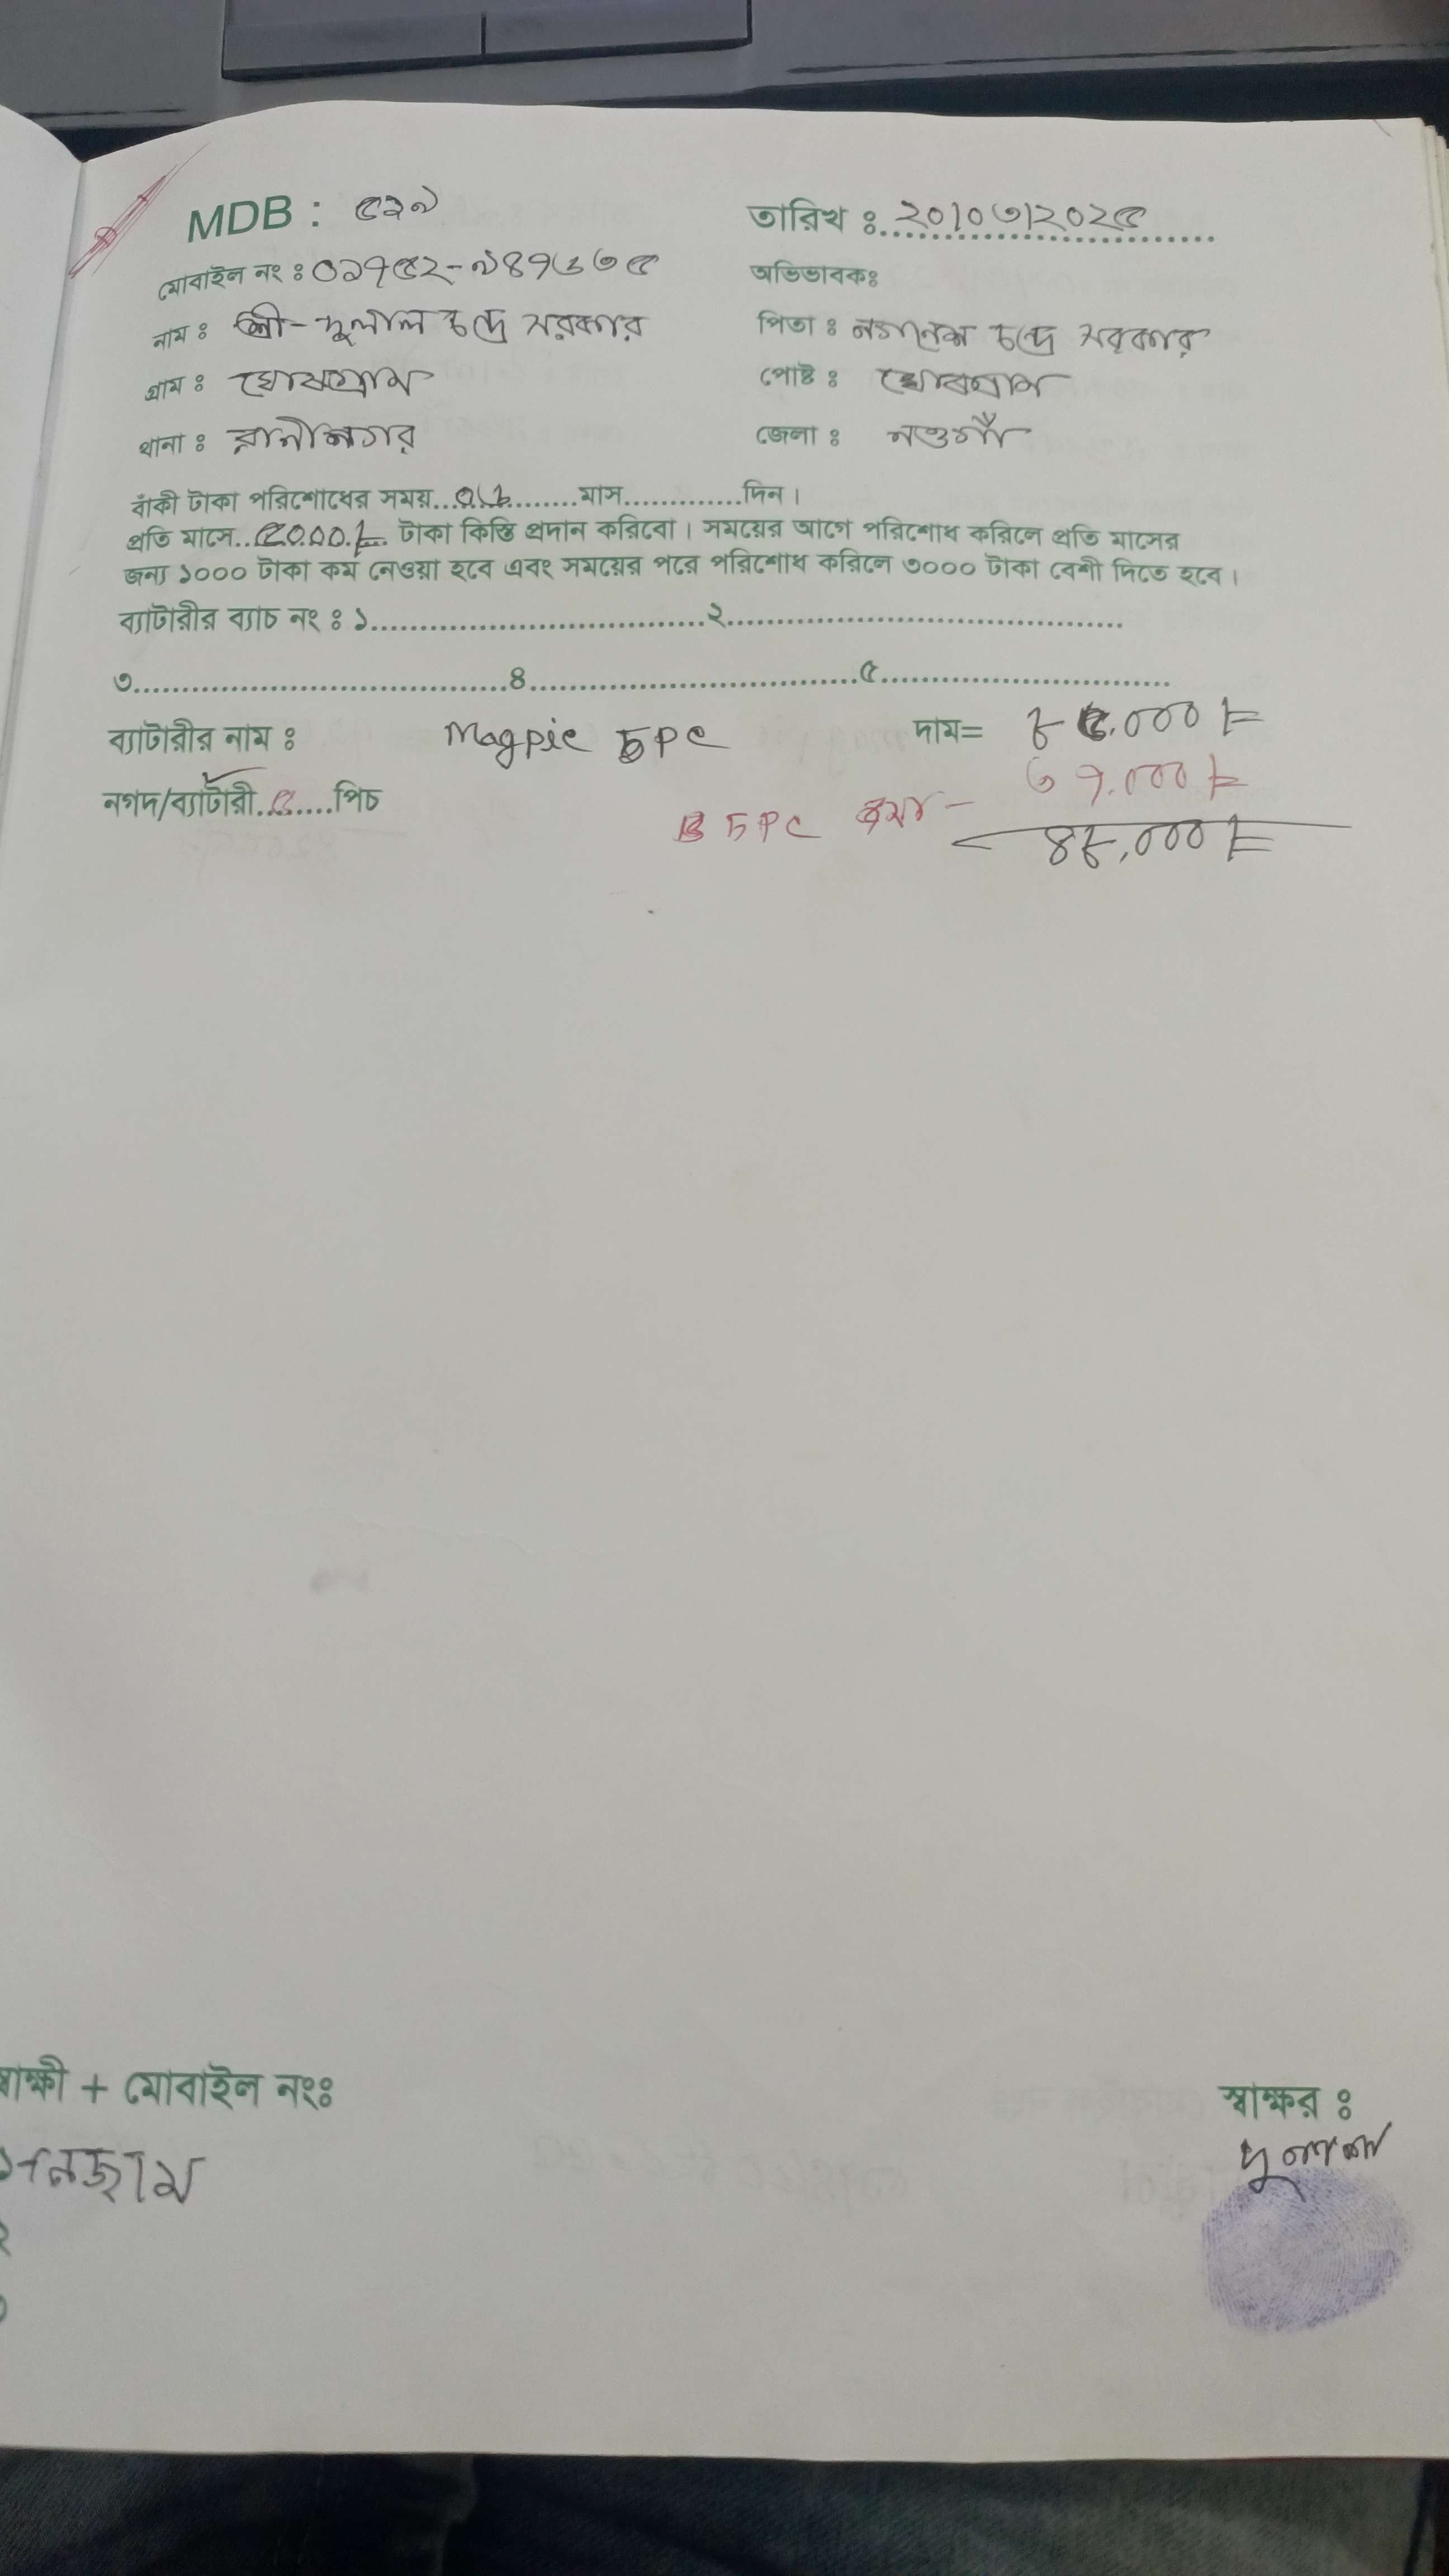 MDB : ৫২৯ তারিখ ঃ ২০/০৩/২০২৫
মোবাইল নং ঃ ০১৭৫২-৯৪৭৬৩৫ অভিভাবকঃ
নাম ঃ শ্রী-দুলাল চন্দ্র সরকার পিতা ঃ চন্দ্র সরকার
গ্রাম ঃ ঘোষগ্রাম পোষ্ট ঃ ঘোষগ্রাম
থানা ঃ রানীনগর জেলা ঃ নওগাঁ
বাঁকী টাকা পরিশোধের সময়............মাস.............দিন।
প্রতি মাসে..৫০০০/=. টাকা কিস্তি প্রদান করিবো। সময়ের আগে পরিশোধ করিলে প্রতি মাসের
জন্য ১০০০ টাকা কম নেওয়া হবে এবং সময়ের পরে পরিশোধ করিলে ৩০০০ টাকা বেশী দিতে হবে।
ব্যাটারীর ব্যাচ নং ঃ ১....................................২...........................................
৩.........................................৪....................................৫................................
ব্যাটারীর নাম ঃ Magpie 5PC দাম= ৮৫,০০০/=
নগদ/ব্যাটারী..৫....পিচ
B 5PC জমা - ৩৭,০০০/=
৪৮,০০০/=
স্বাক্ষী + মোবাইল নংঃ স্বাক্ষর ঃ
দুলাল